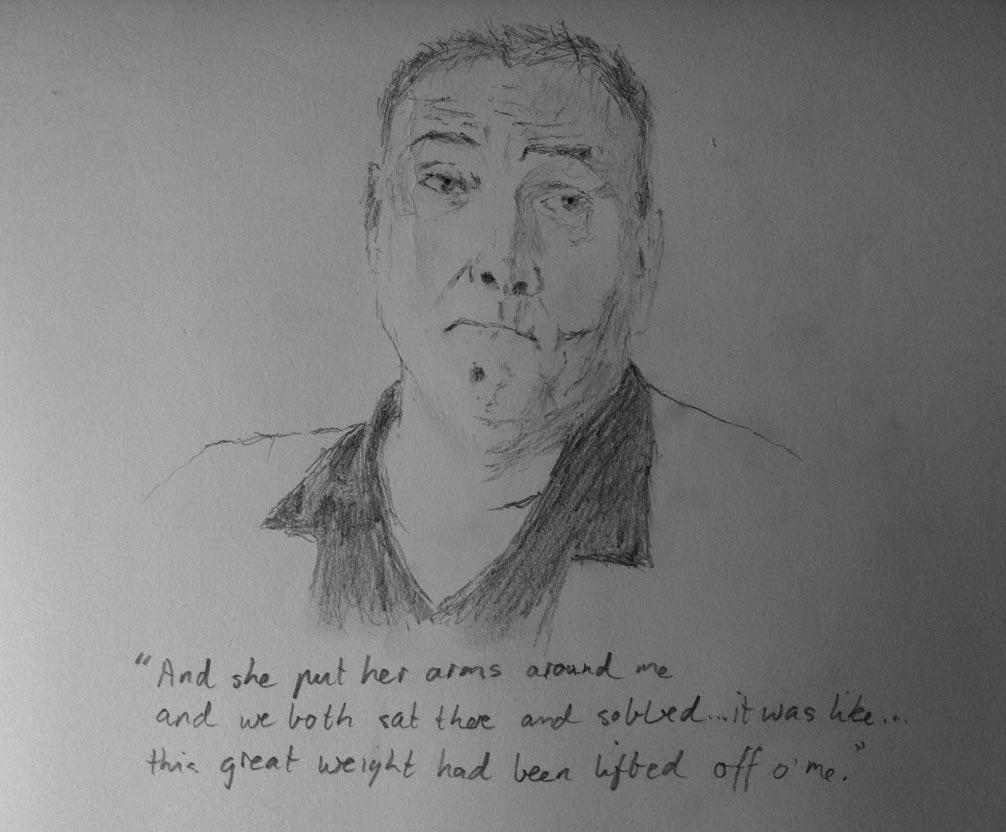 "And she put her arms around me
and we both sat there and sobbed...it was like...
this great weight had been lifted off o' me."